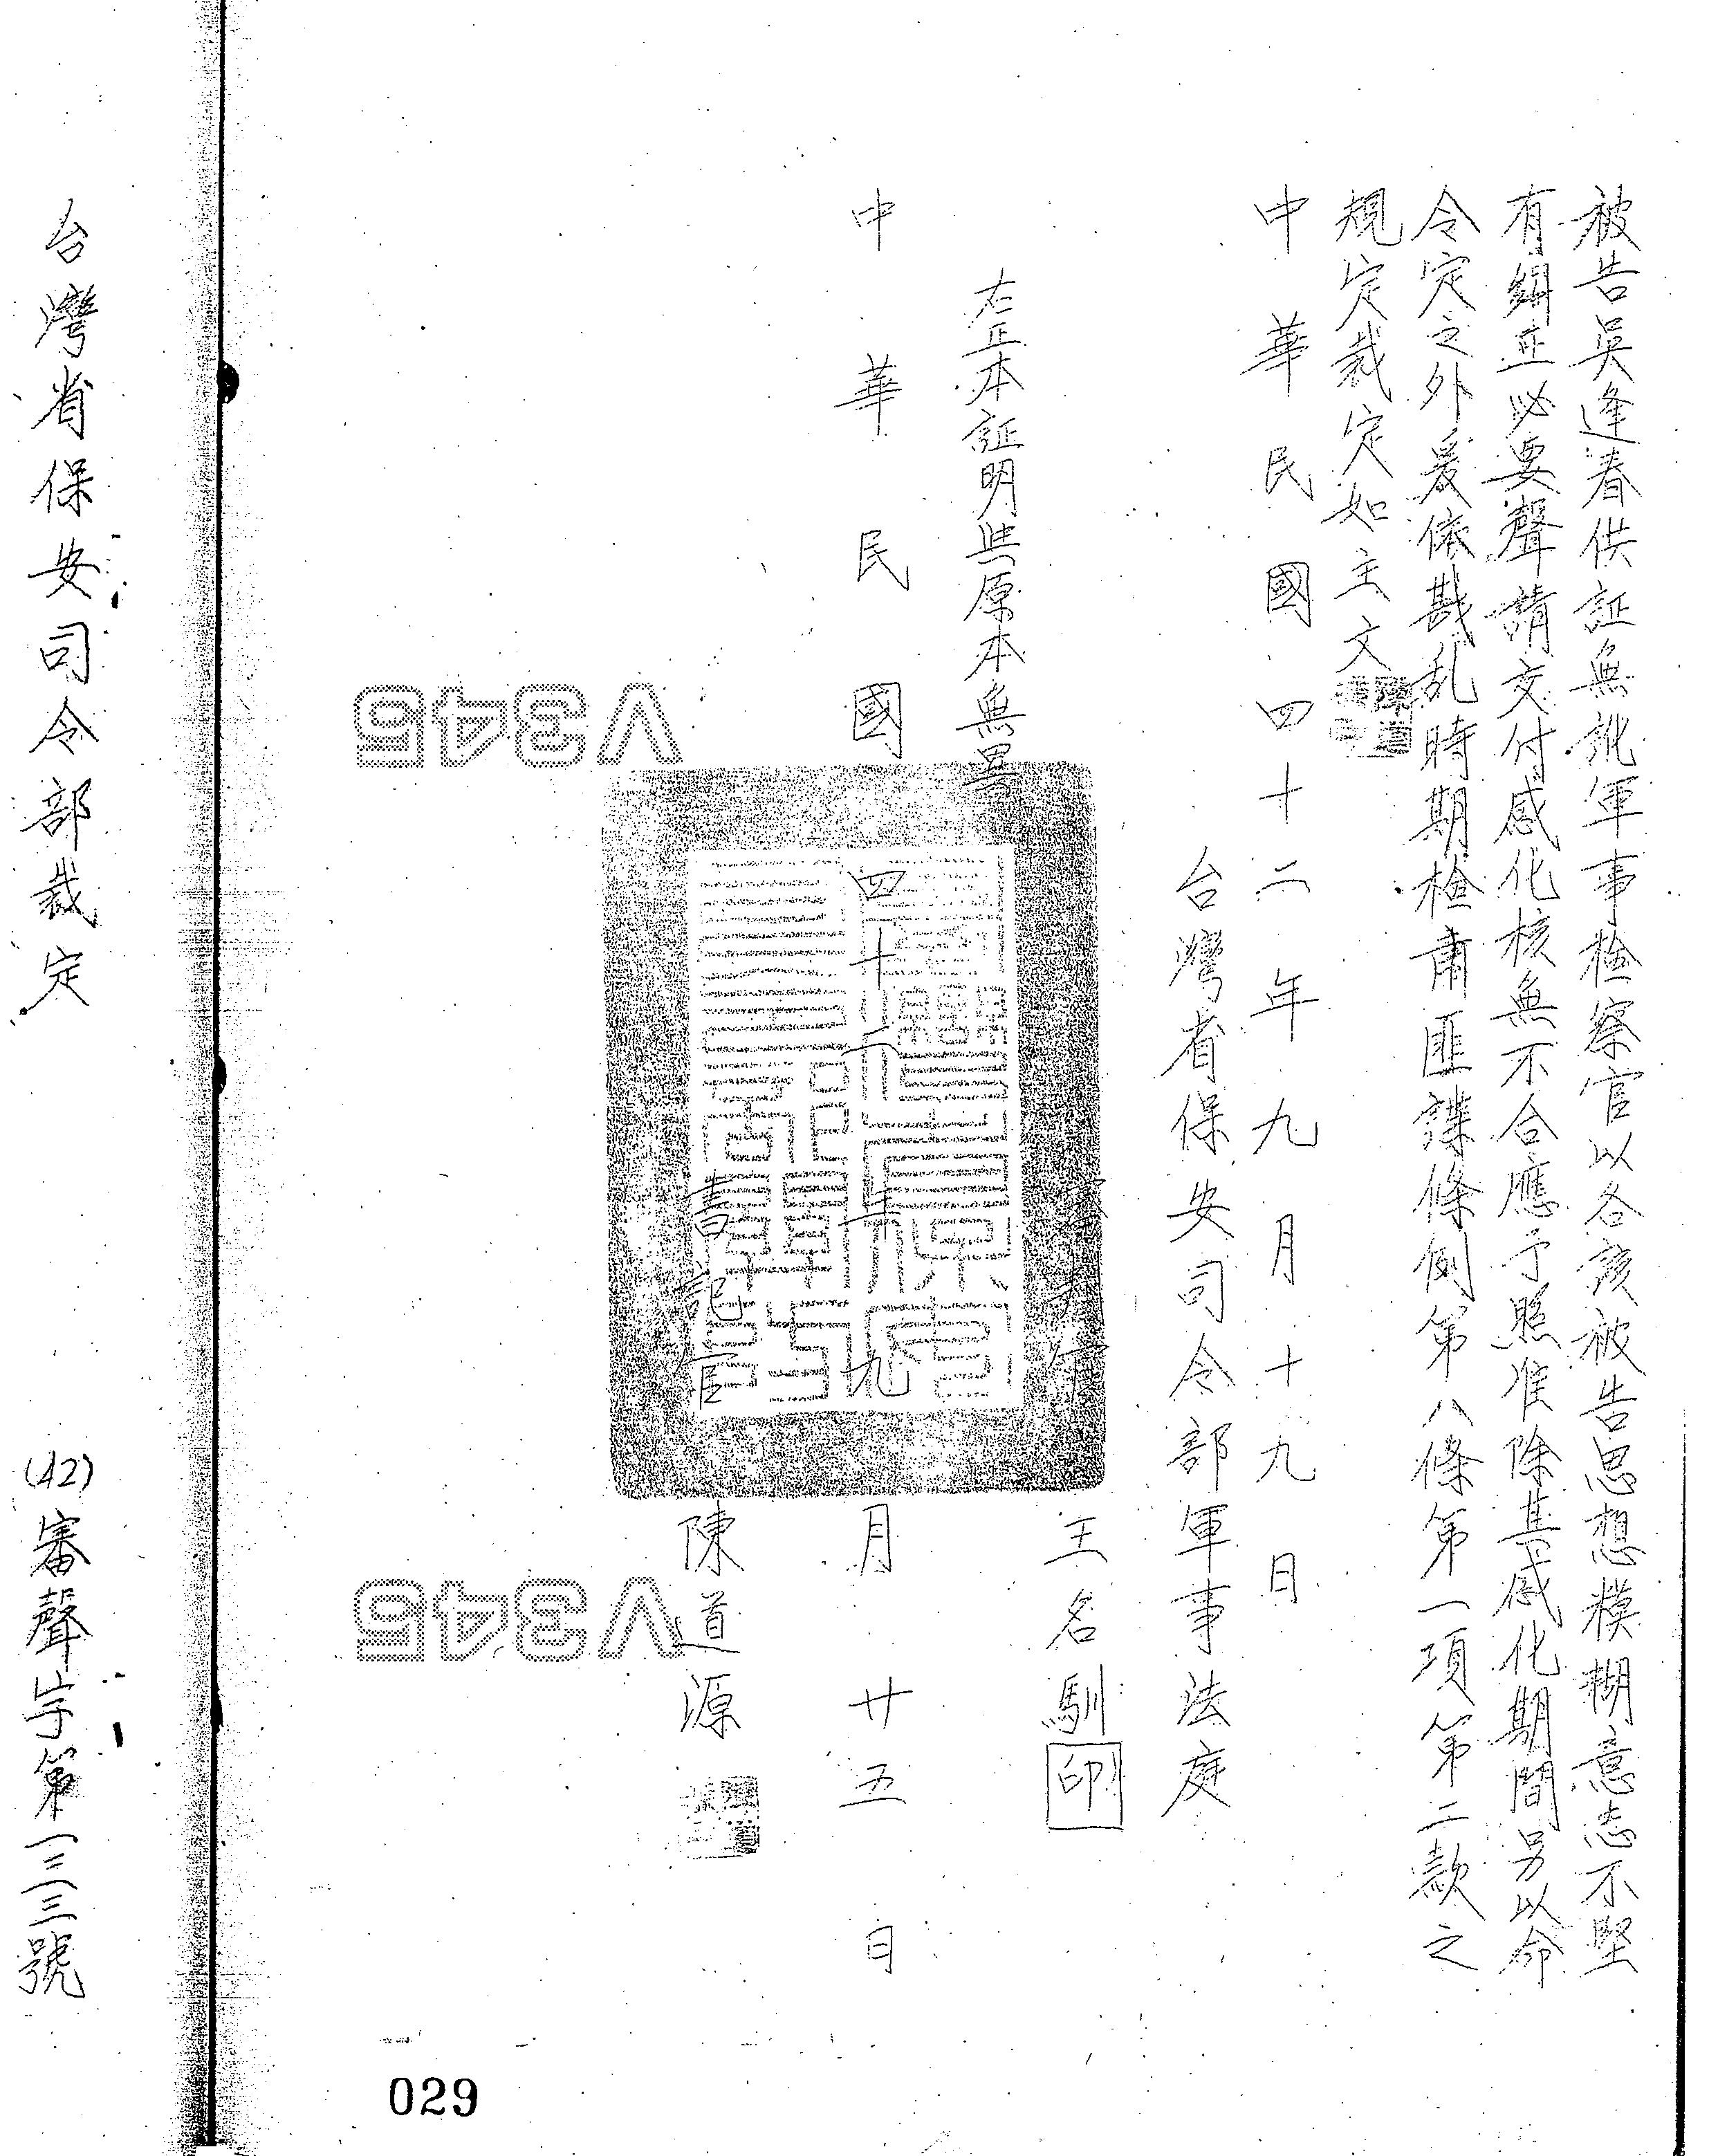 被告吳逢春供証無訛軍事檢察官以各該被告思想糢糊意志不堅
有糾正必要聲請交付感化核無不合應予照准除其感化期間另以命
令定之外爰依戡乱時期檢肅匪諜條例第八條第一項第二款之
規定裁定如主文
中華民國四十二年九月十九日
台灣省保安司令部軍事法庭
審判官 王名馴 印
右正本証明與原本無異
中華民國四十二年九月廿五日
書記官 陳道源
V345
V345
台灣省保安司令部裁定 (42)審聲字第一三三號
029